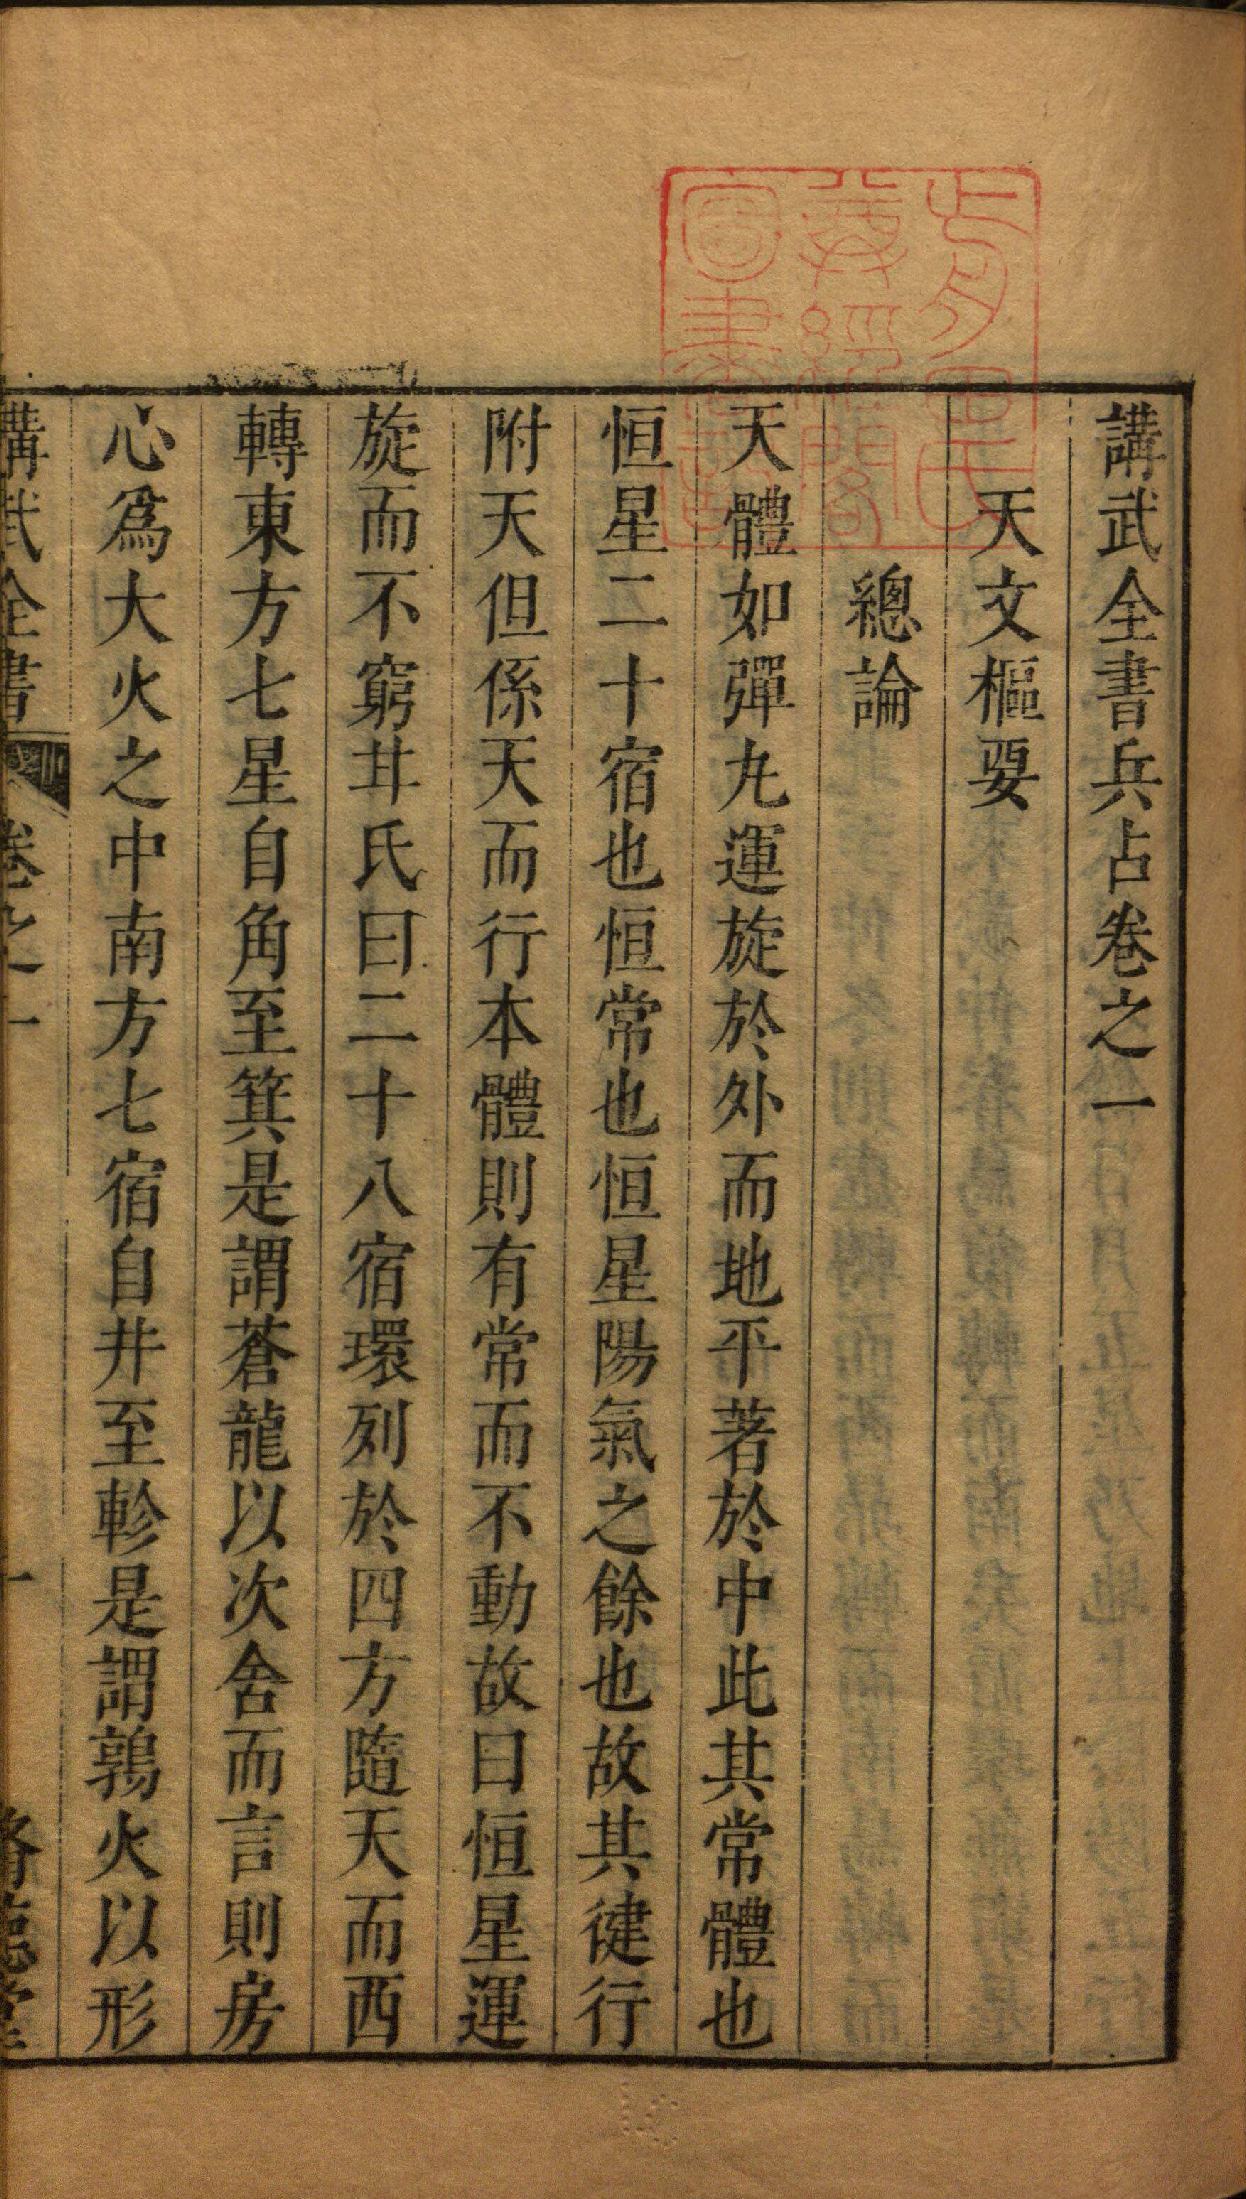 講武全書兵占卷之一
天文樞要
總論
天體如彈丸運旋於外而地平著於中此其常體也
恒星二十宿也恒常也恒星陽氣之餘也故其健行
附天但係天而行本體則有常而不動故曰恒星運
旋而不窮甘氏曰二十八宿環列於四方隨天而西
轉東方七星自角至箕是謂蒼龍以次舍而言則房
心爲大火之中南方七宿自井至軫是謂鶉火以形
講武全書 卷之一 一